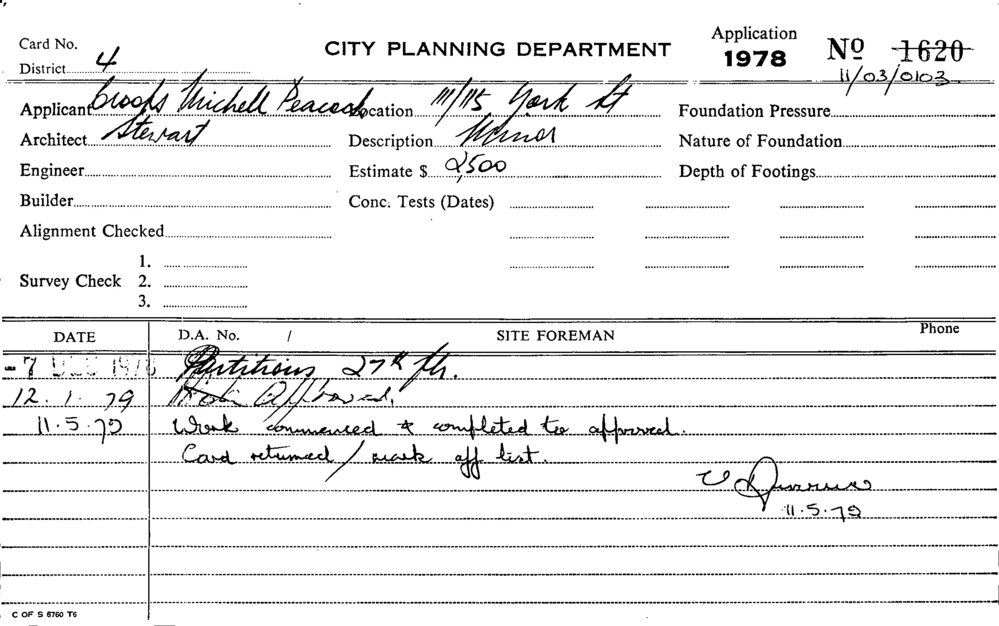 Card No.
District 4
CITY PLANNING DEPARTMENT
Application
1978
No 1620
11/03/0103
Applicant Crooks Michell Peacock Location 111/115 York St Foundation Pressure
Architect Stewart Description Minor Nature of Foundation
Engineer Estimate $ 2,500 Depth of Footings
Builder Conc. Tests (Dates)
Alignment Checked
1.
Survey Check 2.
3.
DATE D.A. No. / SITE FOREMAN Phone
-7 DEC 1978 Partitions 27th flr.
12.1.79 Approved.
11.5.79 Work commenced & completed to approval.
Card returned / mark off list.
11.5.79
C OF S 6760 T6